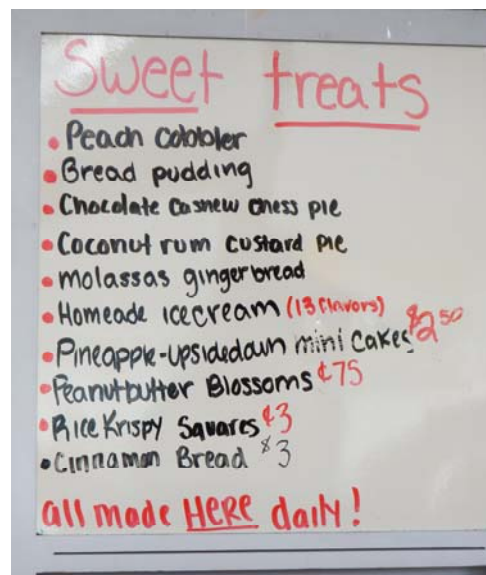 Sweet treats
• Peach cobbler
• Bread pudding
• Chocolate Cashew chess pie
• Coconut rum custard pie
• molassas gingerbread
• Homeade icecream (13 flavors)
• Pineapple-upsidedown mini cakes $2.50
• Peanutbutter Blossoms ¢75
• Rice Krispy Squares ¢3
• Cinnamon Bread $3
all made HERE daily!